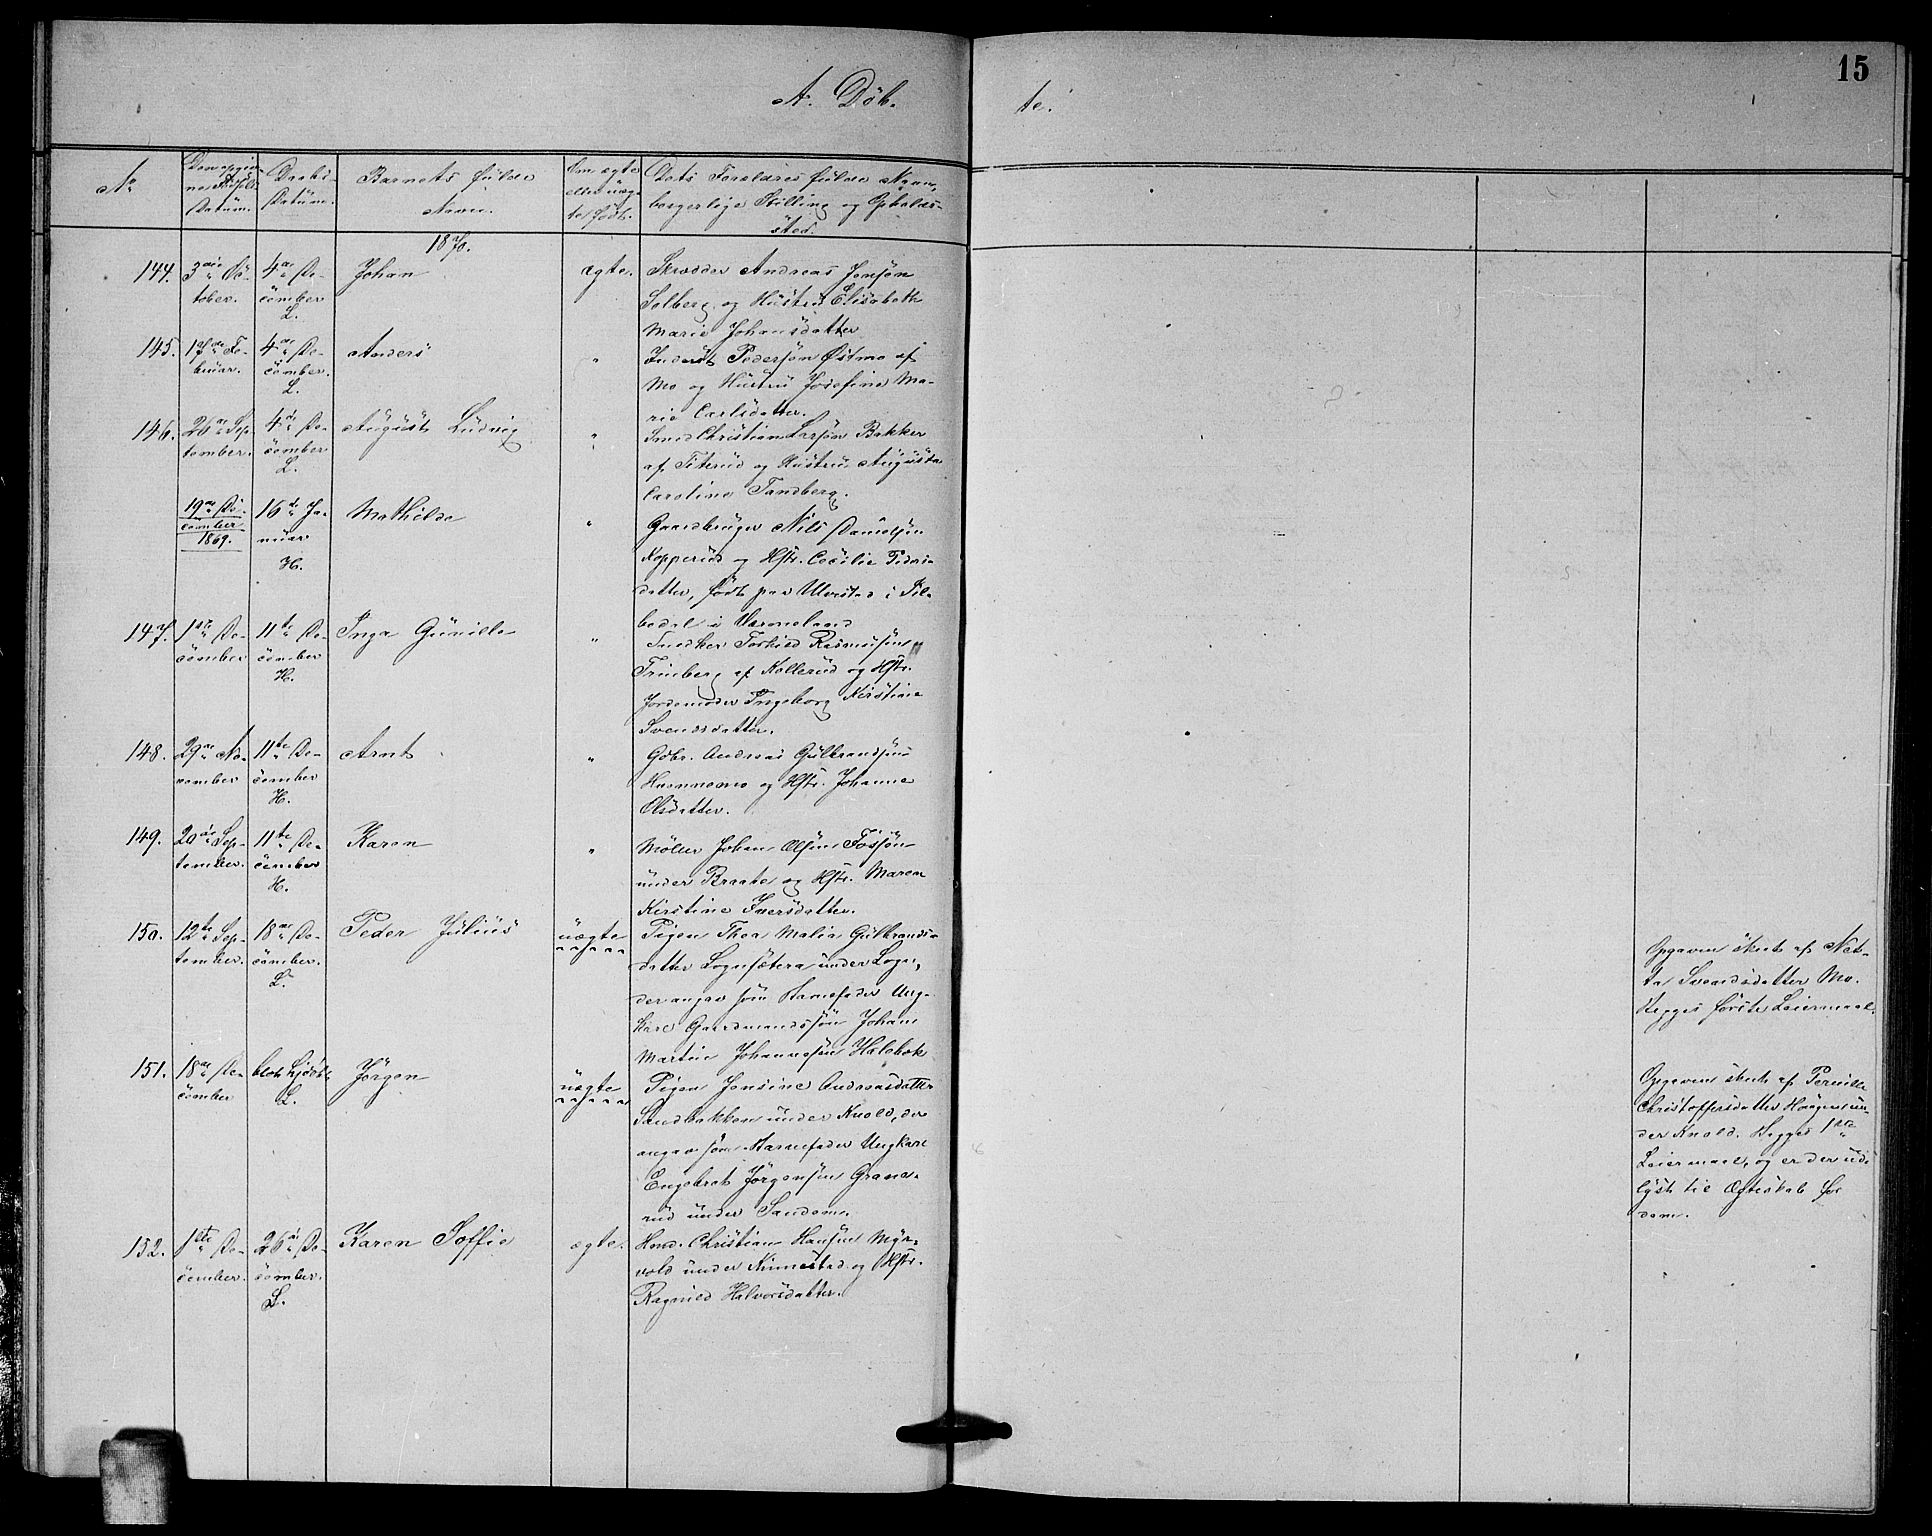 15
A. Döb-
te.
No
Den opgiv-
ne Födsels-
Datum.
Daabs-
Datum.
Barnets fulde
Navn.
Om ægte
eller uæg-
te født.
Dets Forældres fulde Navn,
borgerlige Stilling og Opholds-
sted.
1870.
144.
3die Oc-
tober.
4de De-
cember
L.
Johan
ægte.
Skrædder Andreas Jensøn
Solberg og Hustru Elisabeth
Marie Johansdatter
145.
17de Fe-
bruar.
4de De-
cember.
L.
Anders
"
Inderst Pedersøn Østmo af
Mo og Hustru Josefine Ma-
rie Carlsdatter.
146.
26de Sep-
tember.
4de De-
cember
L.
August Ludvig
"
Smed Christian Larsøn Bakker
af Titerud og Hustru Augusta
Caroline Tandberg.
19de De-
cember
1869.
16de Ja-
nuar
H.
Mathilde
"
Gaardbruger Nils Danielsøn
Kopperud og Hstr. Cecilie Peders-
datter, født paa Ulvestad i Sil-
bodal i Værmeland
147.
1ste De-
cember
11te De-
cember
H.
Inga Gunille
"
Snedker Torkild Rasmusøn
Trinberg af Kollerud og Hstr.
Jordemoder Ingeborg Kirstine
Svendsdatter.
148.
29de No-
vember
11te De-
cember
H.
Arnt
"
Gdbr. Andreas Gulbrandsøn
Hammemo og Hstr. Johanne
Olsdatter.
149.
20de Sep-
tember.
11te De-
cember
H.
Karen
"
Møller Johan Olsøn Fossøn
under Braate og Hstr. Maren
Kirstine Iversdatter.
150.
12te Sep-
tember.
18de De-
cember.
L.
Peder Julius
uægte
Pigen Thea Malia Gulbrands-
datter Lognsætera under Logn,
der angav som Barnefader Ung-
karl Gaardmandssøn Johan
Martin Johannesøn Halebæk
Opgaven skeet af Net-
ta Svendsdatter Mo.
Begges første Leiermaal.
151.
18de De-
cember
blot hjdøbt
L.
Jörgen
uægte
Pigen Jensine Andreasdatter
Sandbakken under Knold, der
angav som Barnefader Ungkarl
Engebret Jörgensøn Grane-
rud under Sandem.
Opgaven skeet af Pernille
Christoffersdatter Haugen un-
der Knold. Begges 1ste
Leiermaal, og er der ud-
lyst til Ægteskab for
dem.
152.
1ste De-
cember.
26de De-
cember.
L.
Karen Soffie
ægte.
Hmd. Christian Hansøn Myr-
vold under Kinnestad og Hstr.
Ragnild Halvorsdatter.